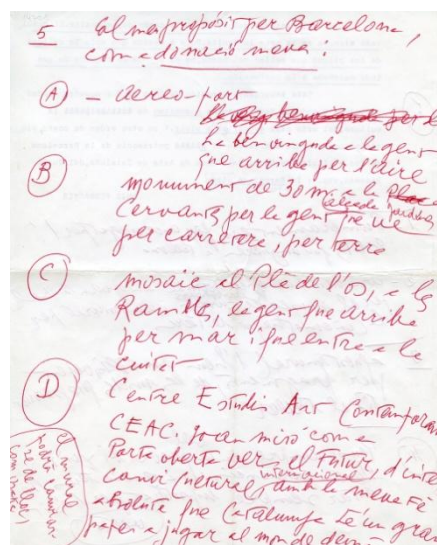 5 El meu propòsit per Barcelona,
com a donació meva:
A – aereo-port
la benvinguda a la gent
que arriba per l'aire
B monument de 30 m. a la
Cervantes per la gent que ve
per carretera, per terra
C mosaic al Pla de l'os, a les
Rambles, la gent que arriba
per mar i que entra a la
ciutat
D Centre Estudis Art Contempora
CEAC. Joan Miró com a
Porta oberta vers el Futur, d'inte
canvi cultural internacional, amb la meva Fe
absoluta que Catalunya té un gran
paper a jugar al mon de demà
el mural
podrà canviar-
se de lloc,